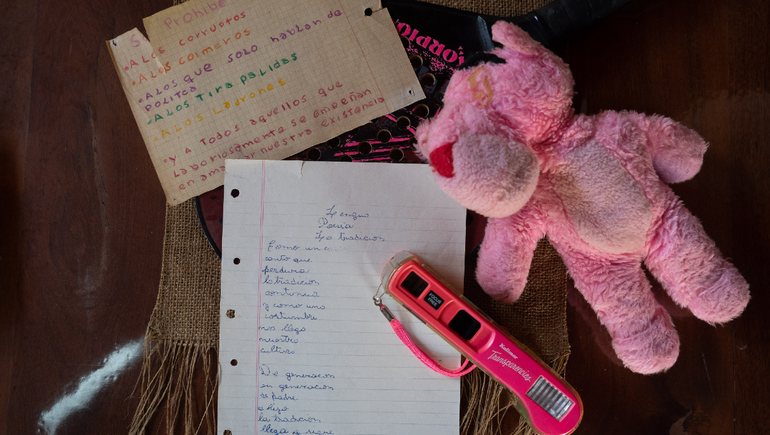 Se Prohibe
• A LOS CORRUPTOS
• A LOS CAIMEROS
• A LOS que solo HABLAN de
POLITCA
• A LOS TIRA PALIDAS
• A LOS LADRONES
• Y A Todos aquellos que
Laboriosamente se empeñan
en amargar nuestra existencia
Lengua
Poesia
La tradicion
Como un
canto que
perdura
la tradicion
continua
y como una
costumbre
nos llega
nuestra
cultura
De generacion
en generacion
de padre
a hijo
la tradicion
llega
FOCUS
FREE
Transparencies